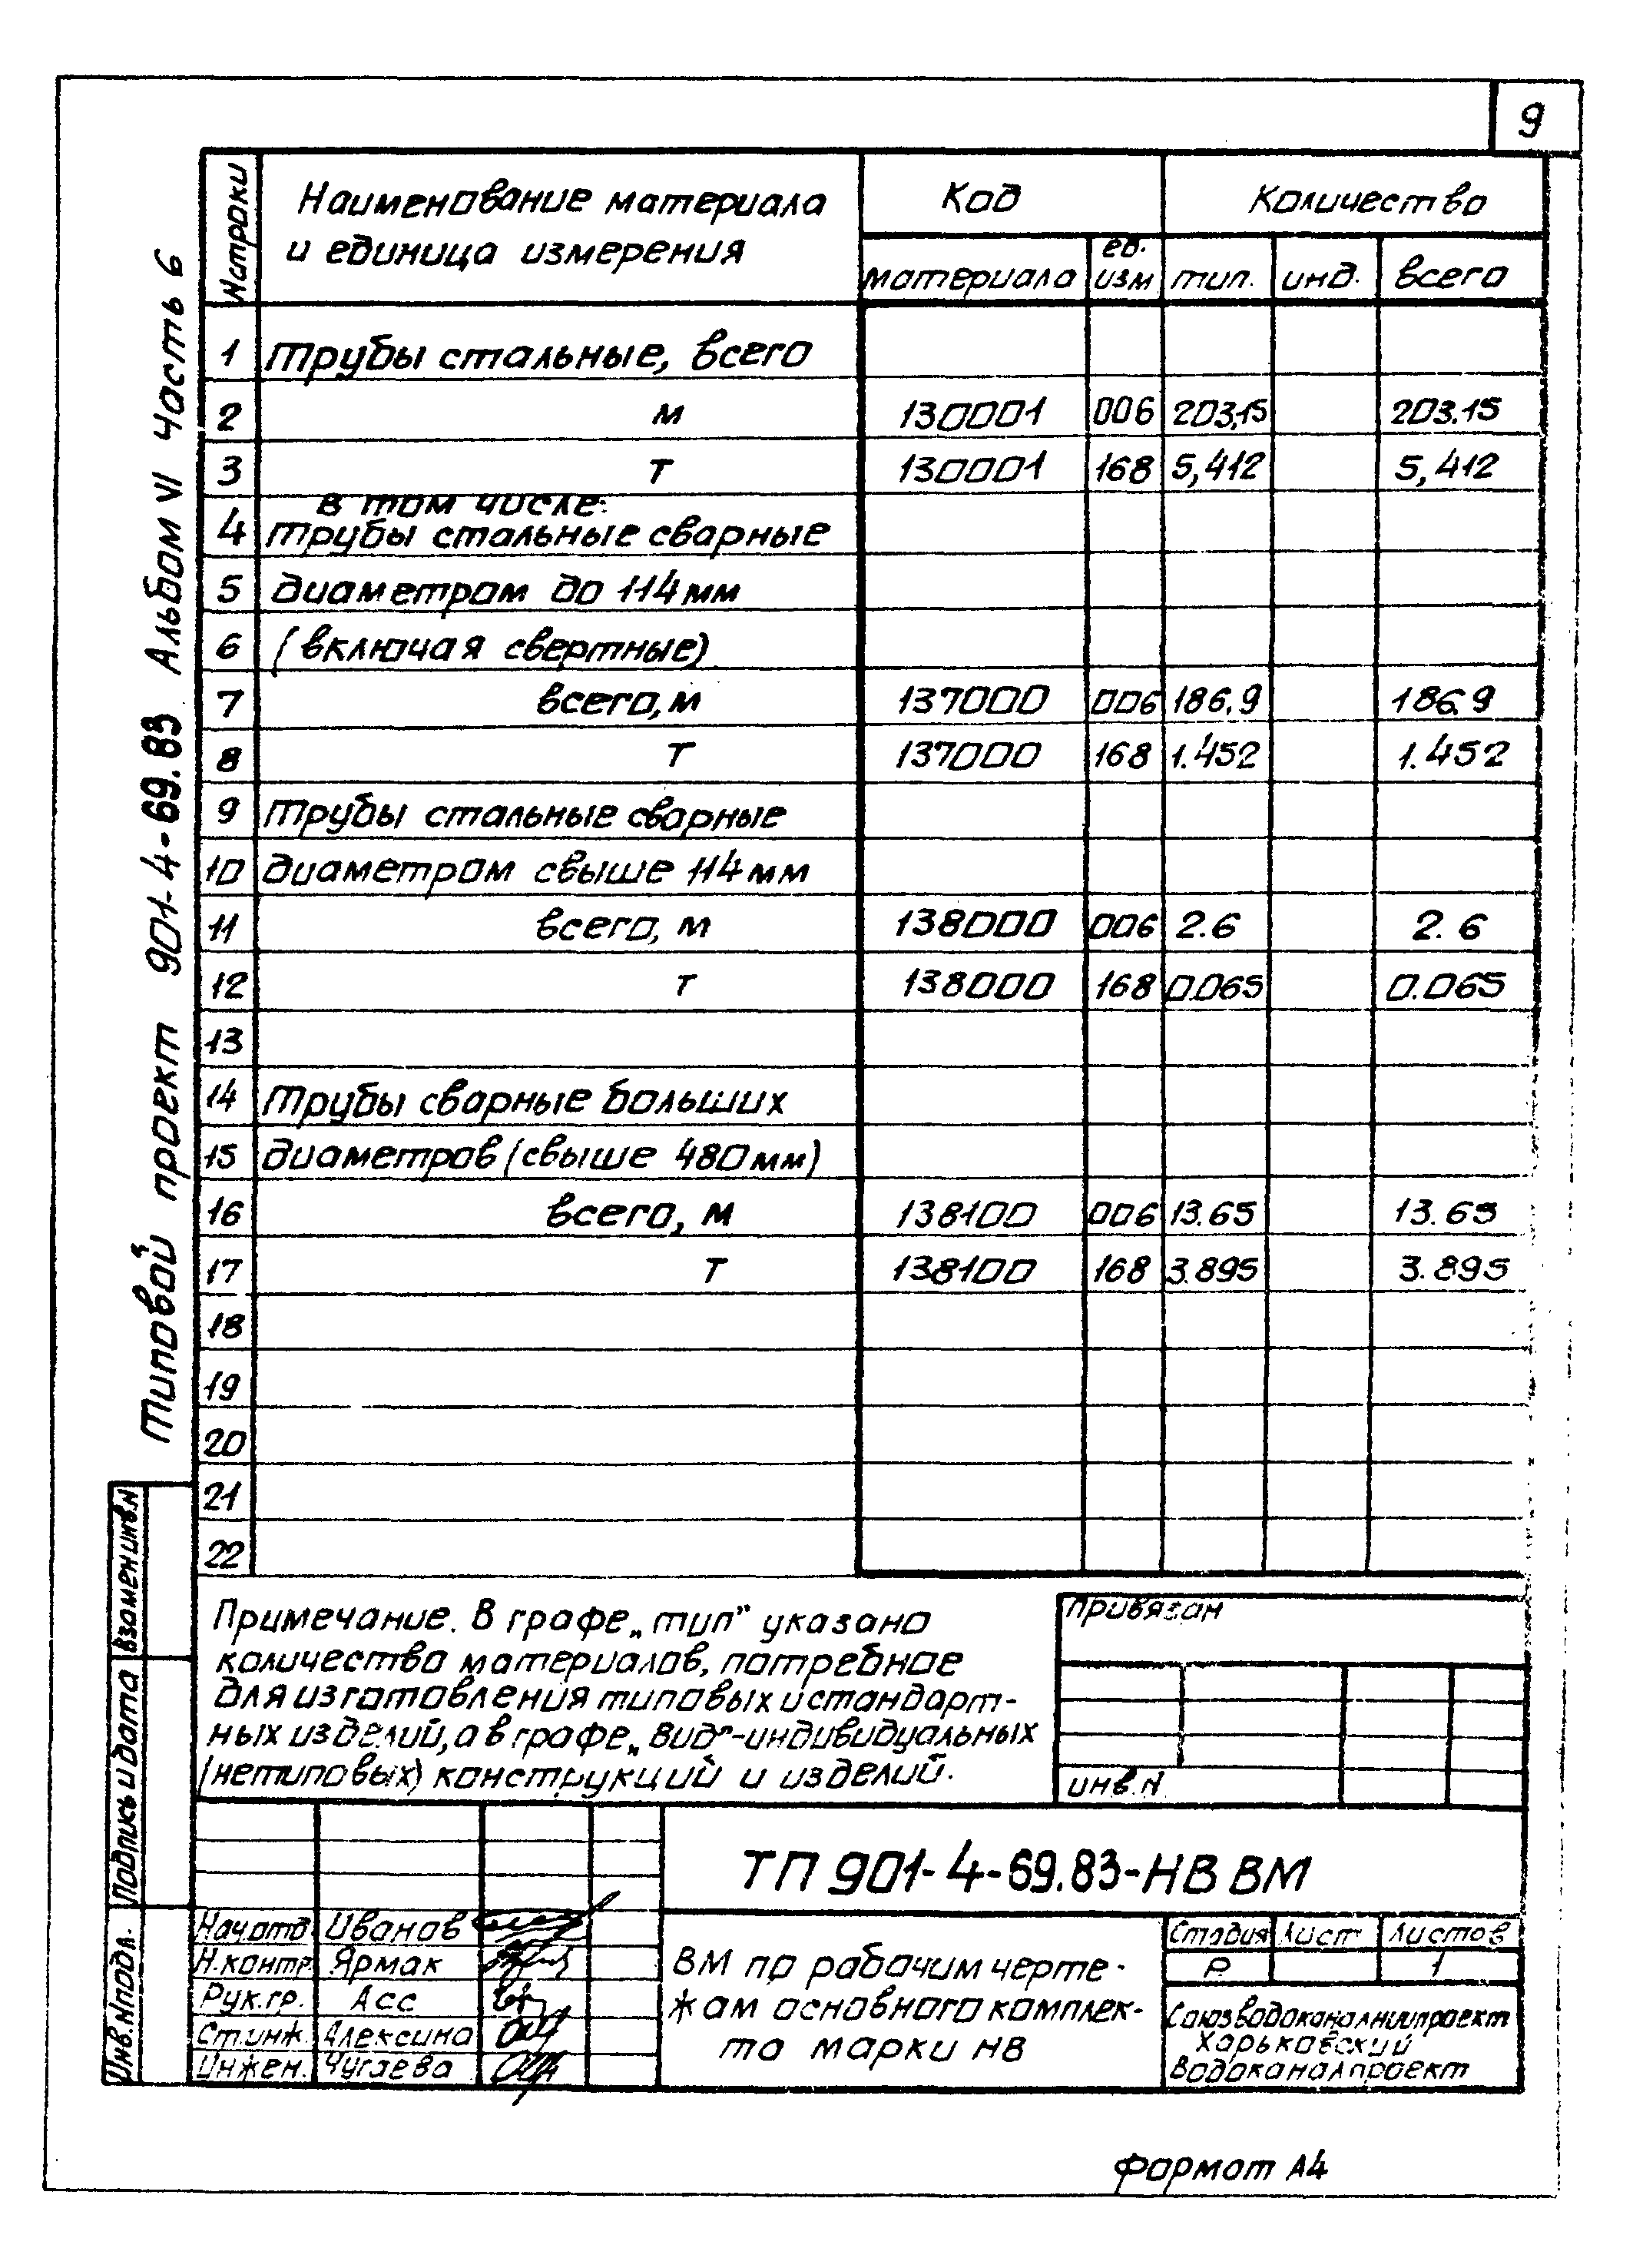 9
Типовой проект 901-4-69.83 Альбом VI Часть 6
N строки
Наименование материала
и единица измерения
Код
Количество
материала
ед.
изм
тип.
инд.
всего
1 Трубы стальные, всего
2 м 130001 006 203,15 203.15
3 т 130001 168 5,412 5,412
в том числе:
4 Трубы стальные сварные
5 диаметром до 114мм
6 (включая свертные)
7 всего, м 137000 006 186,9 186.9
8 т 137000 168 1.452 1.452
9 Трубы стальные сварные
10 диаметром свыше 114мм
11 всего, м 138000 006 2.6 2.6
12 т 138000 168 0.065 0.065
13
14 Трубы сварные больших
15 диаметров (свыше 480мм)
16 всего, м 138100 006 13.65 13.65
17 т 138100 168 3.895 3.895
18
19
20
21
22
Примечание. В графе „тип” указано
количество материалов, потребное
для изготовления типовых и стандарт-
ных изделий, а в графе „вид”-индивидуальных
(нетиповых) конструкций и изделий.
Привязан
инв.N
Взамен инв.N
Подпись и дата
Инв.Nподл.
ТП 901-4-69.83-НВ ВМ
Нач.отд. Иванов
Н.контр. Ярмак
Рук.гр. Асс
Ст.инж. Алексина
Инжен. Чугаева
ВМ по рабочим черте-
жам основного комплек-
та марки НВ
Стадия Лист Листов
Р 1
Союзводоканалниипроект
Харьковский
Водоканалпроект
Формат А4